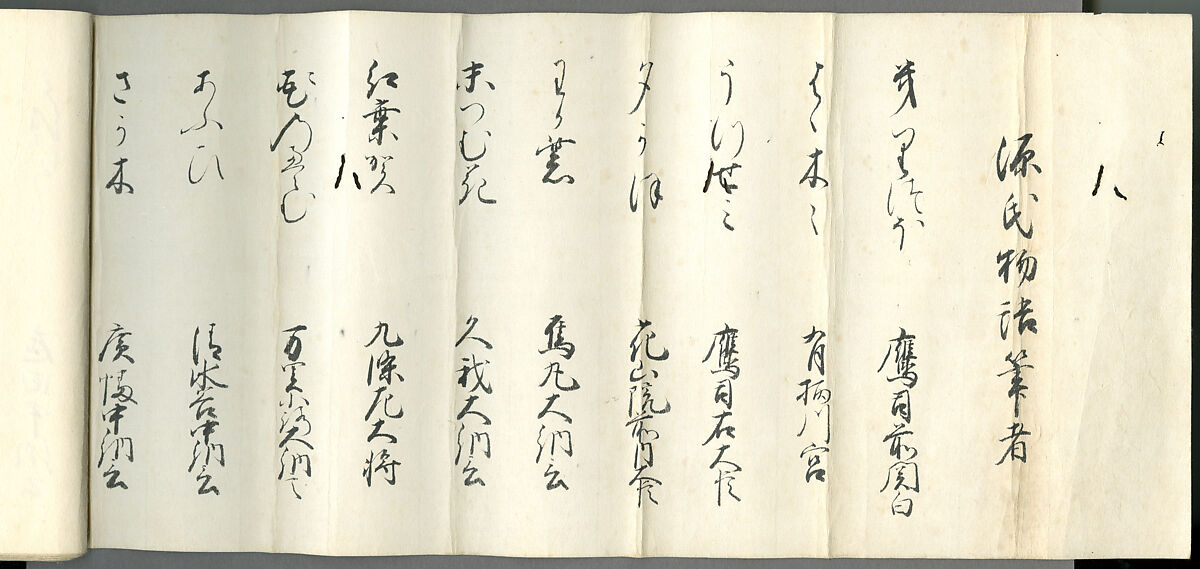 源氏物語筆者
きりつほ 鷹司前関白
はゝ木ゝ 有栖川宮
うつせミ 鷹司右大臣
夕かほ 花山院前内大臣
わか紫 烏丸大納言
末つむ花 久我大納言
紅葉賀 九條左大将
花のえん 大納言
あふひ 清水谷中納言
さか木 廣幡中納言